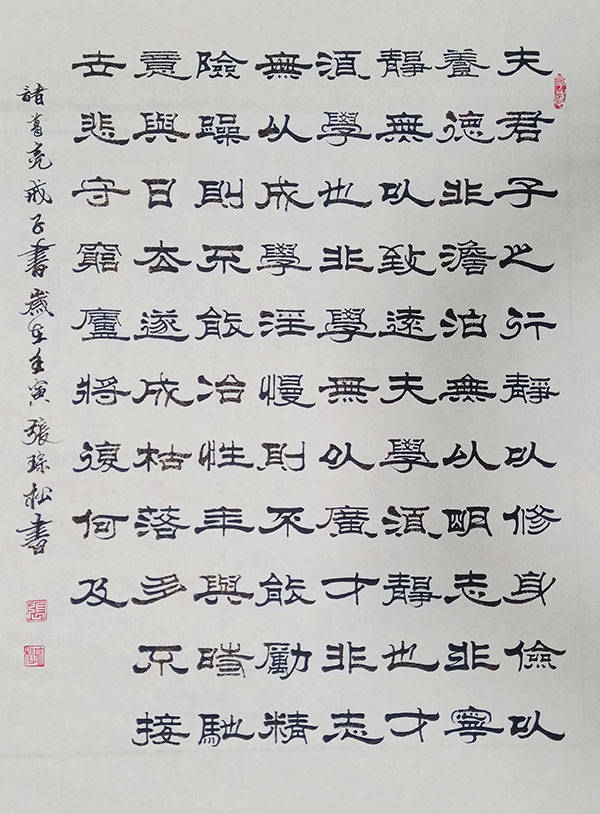 夫君子之行靜以修身儉以
養德非澹泊無以明志非寧
靜無以致遠夫學須靜也才
須學也非學無以廣才非志
無以成學淫慢則不能勵精
險躁則不能冶性年與時馳
意與日去遂成枯落多不接
世悲守窮廬將復何及
諸葛亮戒子書歲在壬寅張琮松書
張